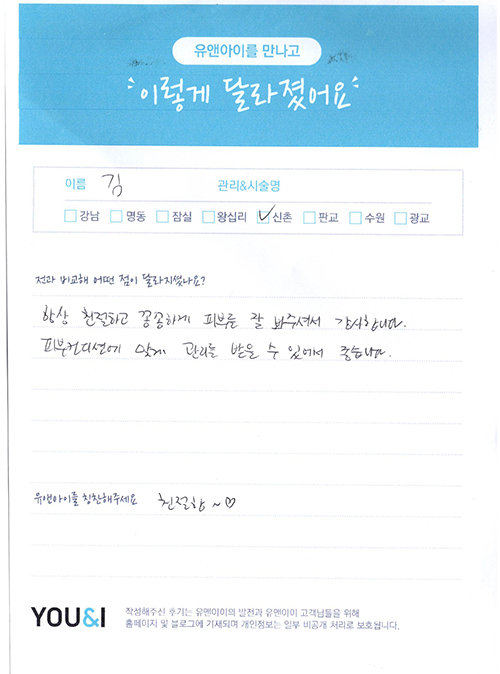 유앤아이를 만나고
이렇게 달라졌어요
이름 김 관리&시술명
강남 명동 잠실 왕십리 신촌 판교 수원 광교
전과 비교해 어떤 점이 달라지셨나요?
항상 친절하고 꼼꼼하게 피부를 잘 봐주셔서 감사합니다.
피부컨디션에 맞게 관리를 받을 수 있어서 좋습니다.
유앤아이를 칭찬해주세요 친절함~♡
YOU&I
작성해주신 후기는 유앤아이의 발전과 유앤아이 고객님들을 위해
홈페이지 및 블로그에 기재되며 개인정보는 일부 비공개 처리로 보호됩니다.